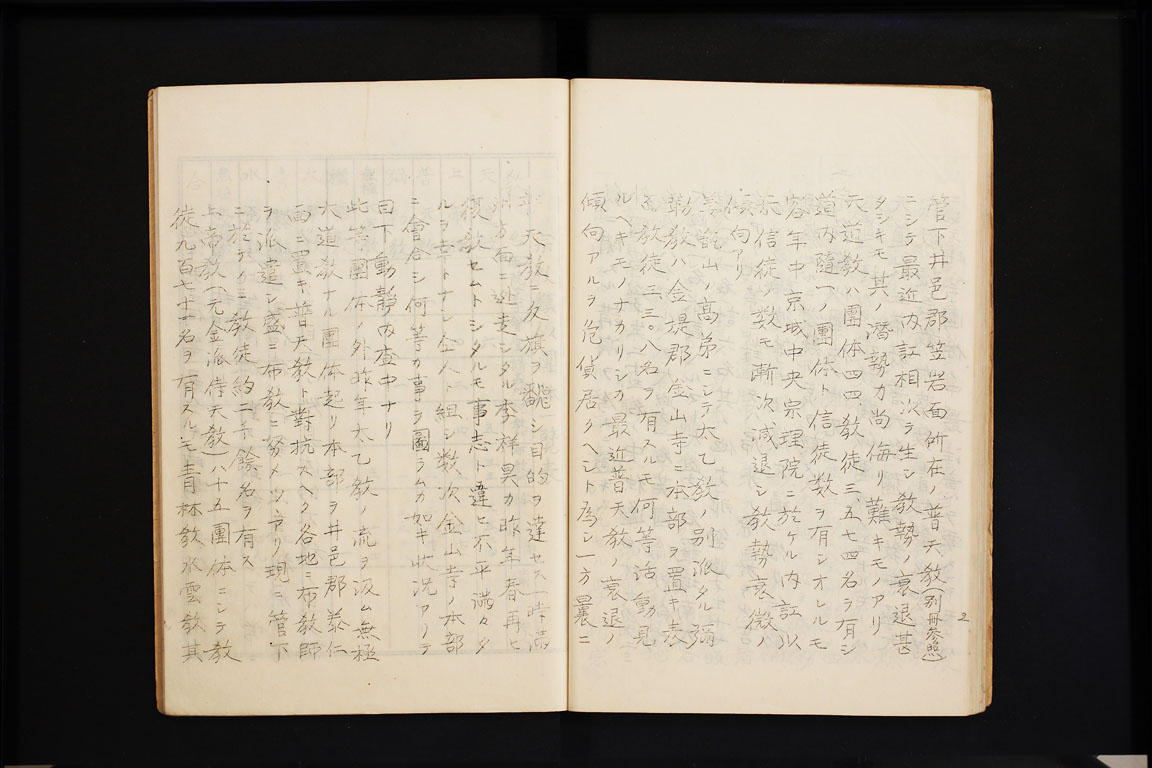 2
管下井邑郡笠岩面所在ノ普天教(別冊参照)
ニシテ最近内訌相次テ生シ教勢ノ衰退甚
タシキモ其ノ潜勢力尚侮リ難キモノアリ
天道教ハ團体四四教徒三、五七四名ヲ有シ
道内随一ノ團体ト信徒数ヲ有シオレルモ
客年中京城中央宗理院ニ於ケル内訌以
来信徒ノ数モ漸次減退シ教勢衰微ノ
傾向アリ
甑山ノ高弟ニシテ太乙教ノ別派タル彌
勒教ハ金堤郡金山寺ニ本部ヲ置キ表
教徒三三〇八名ヲ有スルモ何等活動見
ルヘキモノナカリシカ最近普天教ノ衰退ノ
傾向アルヲ危貨居クヘシト為シ一方曩ニ
天教ニ反旗ヲ翻シ目的ヲ達セス一時満
州方面ニ逃走シタル李祥昊カ昨年春再ヒ
復教セムトシタルモ事志ト違ヒ不平満々タ
ルヲ幸トナシ仝人ト組シ数次金山寺ノ本部
ニ會合シ何等カ事ヲ圖ラムカ如キ状況アリテ
目下動静内査中ナリ
此等團体ノ外昨年太乙教ノ流ヲ汲ム無極
大道教ナル團体起リ本部ヲ井邑郡泰仁
面ニ置キ普天教ト對抗スヘク各地ニ布教師
ヲ派遣シ盛ニ布教ニ努メツツアリ現ニ管下
ニ於テカニ教徒約二千餘名ヲ有ス
上帝教(元金派侍天教)ハ十五團体ニシテ教
徒九百七十一名ヲ有スルモ青林教水雲教其